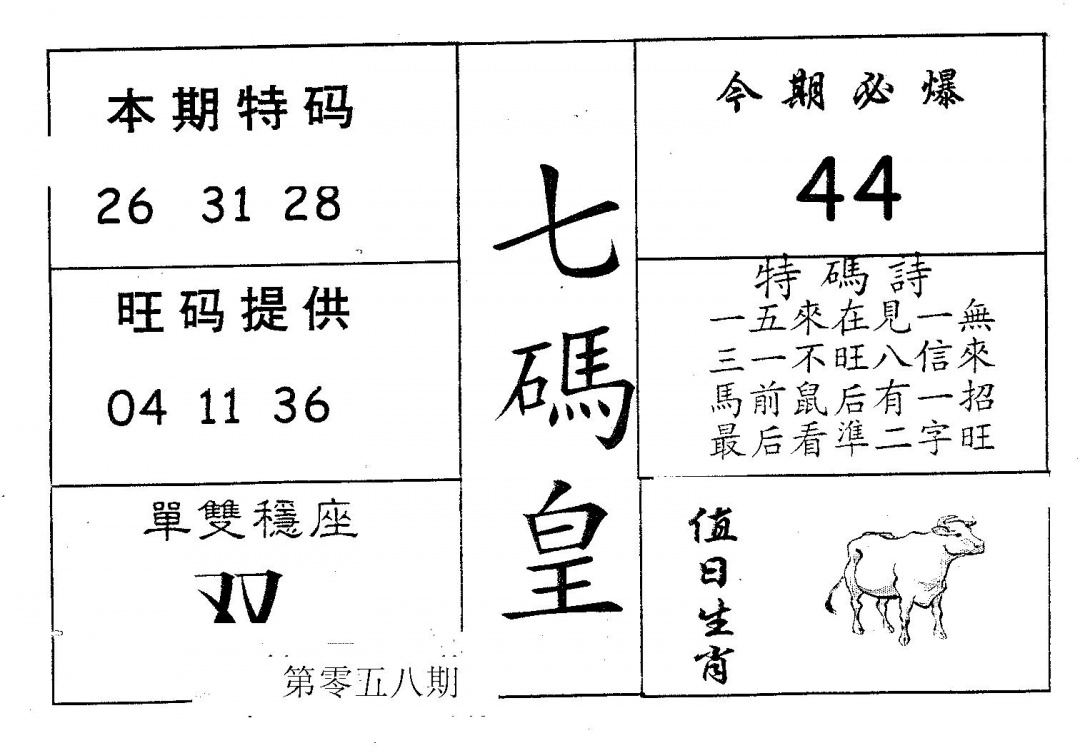 本期特码
26 31 28
旺码提供
04 11 36
單雙穩座
双
第零五八期
七碼皇
今期必爆
44
特碼詩
一五來在見一無
三一不旺八信來
馬前鼠后有一招
最后看準二字旺
值日生肖